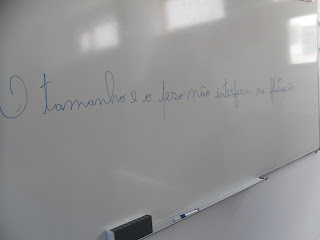 O tamanho e o peso não interferem na flutuação